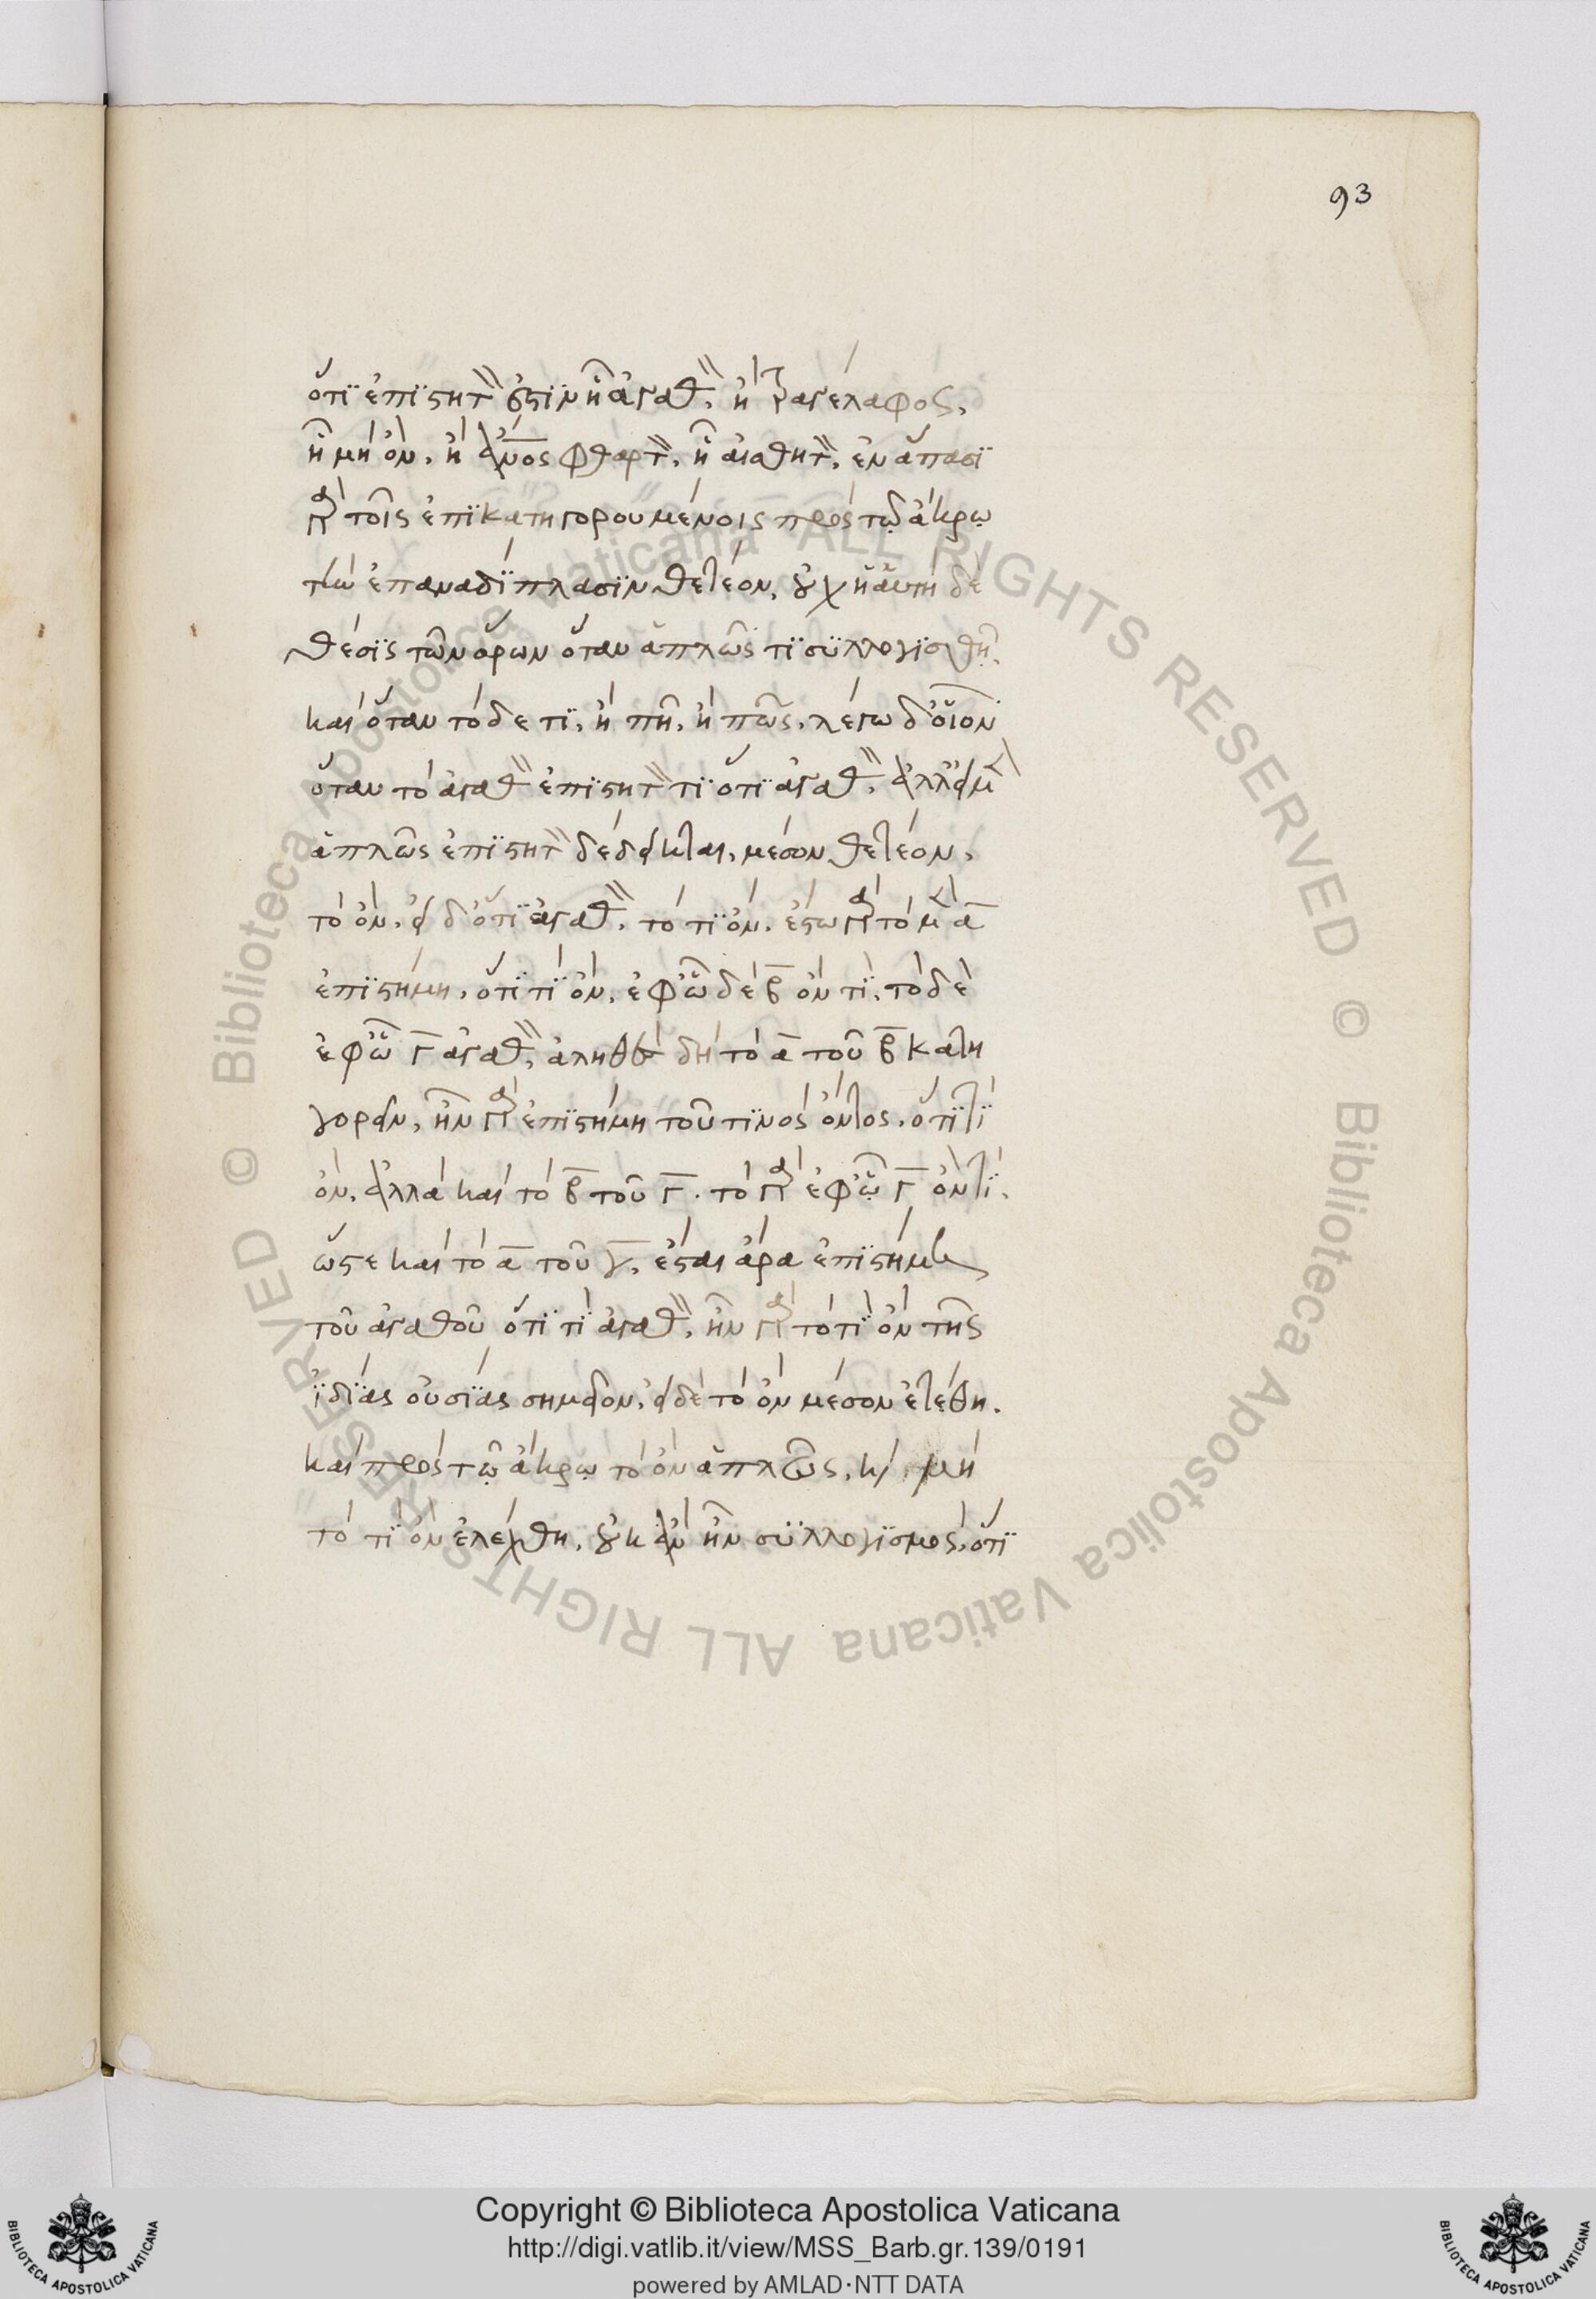 93
ὅτι ἐπιστητὸν ἐστὶν ᾗ ἀγαθόν, ἢ τραγέλαφος,
ᾗ μὴ ὄν, ἢ ἄνος φθαρτὸν, ᾗ αἰσθητόν, ἐν ἅπασι
γὰρ τοῖς ἐπικατηγορουμένοις πρὸς τῷ ἄκρῳ
τὴν ἐπαναδίπλασιν θετέον, οὐχ ἡ αὐτὴ δὲ
θέσις τῶν ὅρων ὅταν ἁπλῶς τι συλλογισθῇ.
καὶ ὅταν τόδε τι, ἢ πῇ, ἢ πῶς, λέγω δ' οἷον
ὅταν τὸ ἀγαθὸν ἐπιστητόν τι ὅτι ἀγαθόν, ἀλλ' εἰ μὲν
ἁπλῶς ἐπιστητὸν δέδεικται, μέσον θετέον,
τὸ ὄν, εἰ δ' ὅτι ἀγαθόν, τὸ τι ὄν, ἔστω γὰρ τὸ μὲν α
ἐπιστήμη, ὅτι τι ὄν, ἐφ' ᾧ δὲ β ὄν τι, τὸ δὲ
ἐφ' ᾧ γ ἀγαθόν, ἀληθὲς δὴ τὸ α τοῦ β κατη
γορεῖν, ἦν γὰρ ἐπιστήμη τοῦ τινὸς ὄντος, ὅτι τὶ
ὄν, ἀλλὰ καὶ τὸ β τοῦ γ. τὸ γὰρ ἐφ' ᾧ γ ὄν τι,
ὥστε καὶ τὸ α τοῦ γ, ἔσται ἄρα ἐπιστήμη
τοῦ ἀγαθοῦ ὅτι τὶ ἀγαθόν, ἦν γὰρ τὸ τὶ ὂν τῆς
ἰδίας οὐσίας σημεῖον, εἰ δὲ τὸ ὂν μέσον ἐτέθη.
καὶ πρὸς τῷ ἄκρῳ τὸ ὂν ἁπλῶς, κ μὴ
τὸ τὶ ὂν ἐλέχθη, οὐκ ἂν ἦν συλλογισμὸς, ὅτι
Copyright © Biblioteca Apostolica Vaticana
http://digi.vatlib.it/view/MSS_Barb.gr.139/0191
powered by AMLAD·NTT DATA